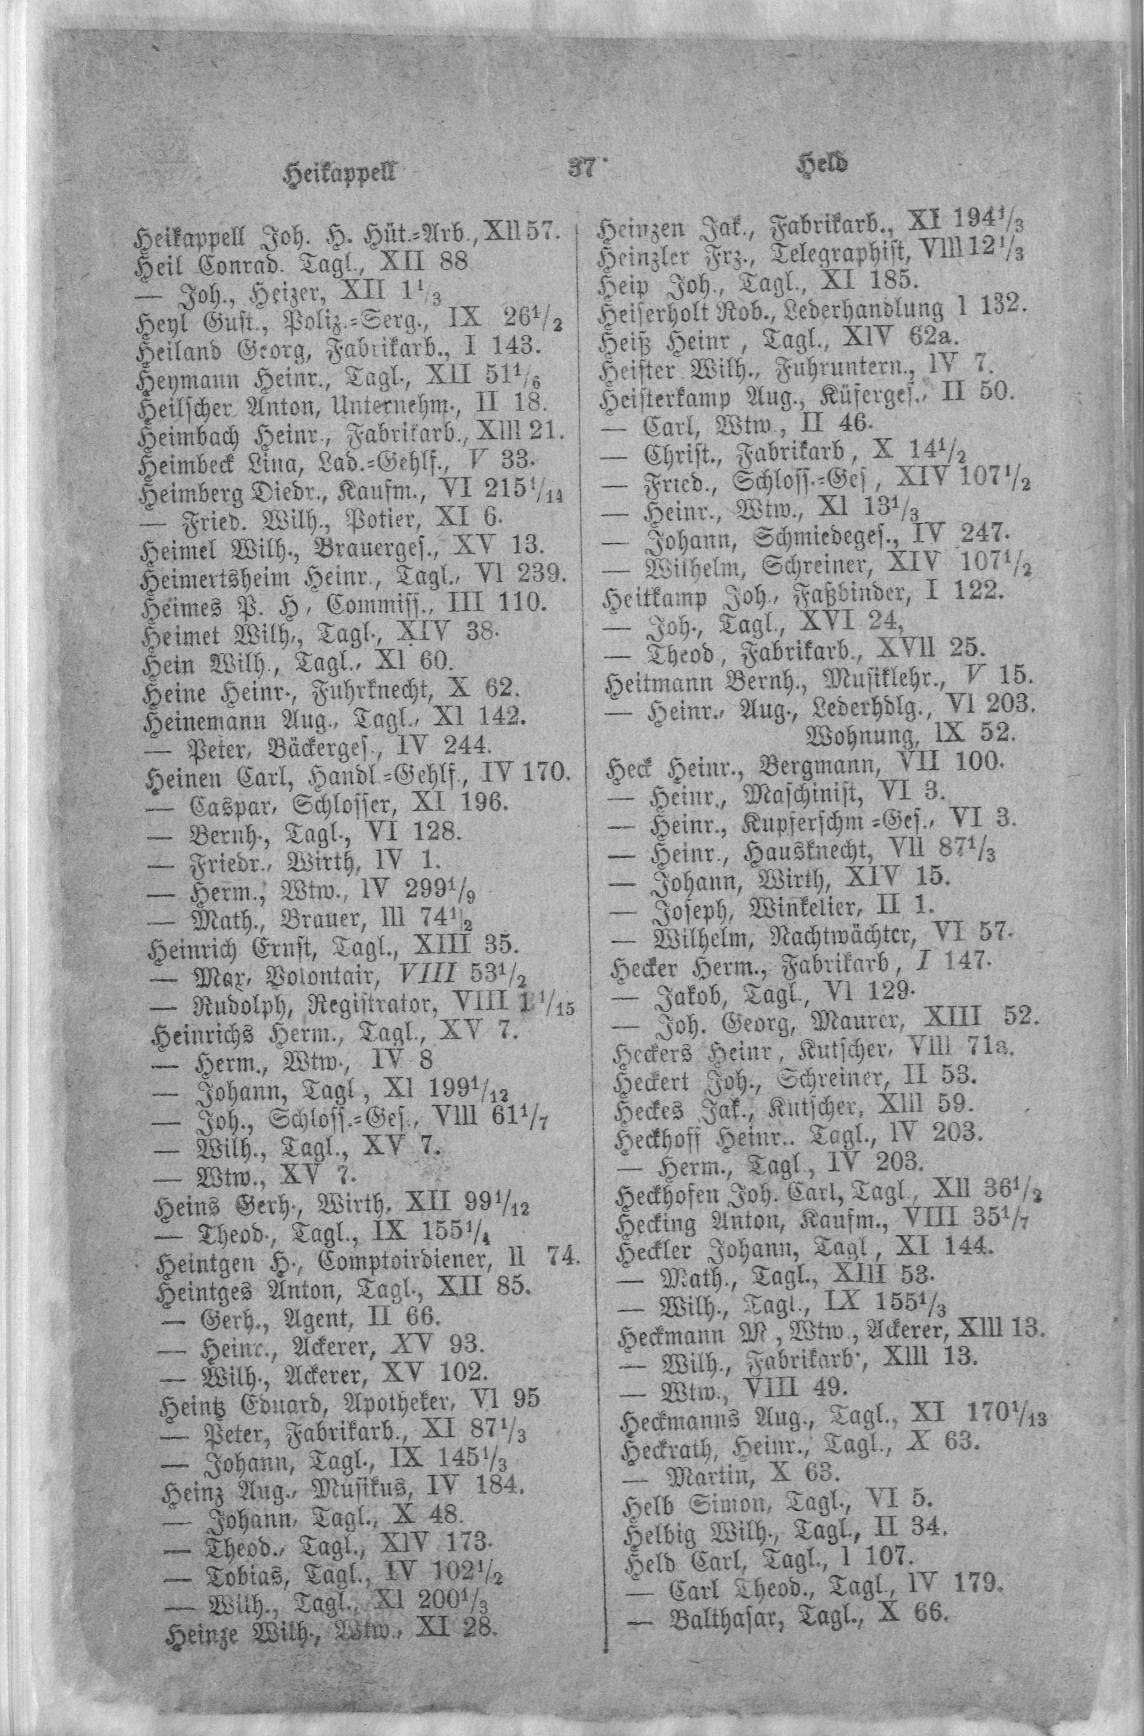 Heikappell
37
Held
Heikappell Joh. H. Hüt.=Arb., XII 57.
Heil Conrad. Tagl., XII 88
— Joh., Heizer, XII 1 1/3
Heyl Gust., Poliz.=Serg., IX 26 1/2
Heiland Georg, Fabrikarb., I 143.
Heymann Heinr., Tagl., XII 51 1/6
Heilscher Anton, Unternehm., II 18.
Heimbach Heinr., Fabrikarb., XIII 21.
Heimbeck Lina, Lad.=Gehlf., V 33.
Heimberg Diedr., Kaufm., VI 215 1/14
— Fried. Wilh., Potier, XI 6.
Heimel Wilh., Brauerges., XV 13.
Heimertsheim Heinr., Tagl., VI 239.
Heimes P. H, Commiss., III 110.
Heimet Wilh., Tagl., XIV 38.
Hein Wilh., Tagl., XI 60.
Heine Heinr., Fuhrknecht, X 62.
Heinemann Aug., Tagl., XI 142.
— Peter, Bäckerges., IV 244.
Heinen Carl, Handl.=Gehlf., IV 170.
— Caspar, Schlosser, XI 196.
— Bernh., Tagl., VI 128.
— Friedr., Wirth, IV 1.
— Herm., Wtw., IV 299 1/9
— Math., Brauer, III 74 1/2
Heinrich Ernst, Tagl., XIII 35.
— Max, Volontair, VIII 53 1/2
— Rudolph, Registrator, VIII 1/15
Heinrichs Herm., Tagl., XV 7.
— Herm., Wtw., IV 8
— Johann, Tagl, XI 199 1/12
— Joh., Schloss.=Ges., VIII 61 1/7
— Wilh., Tagl., XV 7.
— Wtw., XV 7.
Heins Gerh., Wirth, XII 99 1/12
— Theod., Tagl., IX 155 1/4
Heintgen H., Comptoirdiener, II 74.
Heintges Anton, Tagl., XII 85.
— Gerh., Agent, II 66.
— Heinr., Ackerer, XV 93.
— Wilh., Ackerer, XV 102.
Heintz Eduard, Apotheker, VI 95
— Peter, Fabrikarb., XI 87 1/3
— Johann, Tagl., IX 145 1/3
Heinz Aug., Musikus, IV 184.
— Johann, Tagl., X 48.
— Theod., Tagl., XIV 173.
— Tobias, Tagl., IV 102 1/2
— Wilh., Tagl., XI 200 1/3
Heinze Wilh., Wtw., XI 28.
Heinzen Jak., Fabrikarb., XI 194 1/3
Heinzler Frz., Telegraphist, VIII 12 1/3
Heip Joh., Tagl., XI 185.
Heiserholt Rob., Lederhandlung I 132.
Heiß Heinr, Tagl., XIV 62a.
Heister Wilh., Fuhruntern., IV 7.
Heisterkamp Aug., Küferges., II 50.
— Carl, Wtw., II 46.
— Christ., Fabrikarb, X 14 1/2
— Fried., Schloss.=Ges, XIV 107 1/2
— Heinr., Wtw., XI 13 1/3
— Johann, Schmiedeges., IV 247.
— Wilhelm, Schreiner, XIV 107 1/2
Heitkamp Joh., Faßbinder, I 122.
— Joh., Tagl., XVI 24,
— Theod, Fabrikarb., XVII 25.
Heitmann Bernh., Musiklehr., V 15.
— Heinr., Aug., Lederhdlg., VI 203.
Wohnung, IX 52.
Heck Heinr., Bergmann, VII 100.
— Heinr., Maschinist, VI 3.
— Heinr., Kupferschm=Ges., VI 3.
— Heinr., Hausknecht, VII 87 1/3
— Johann, Wirth, XIV 15.
— Joseph, Winkelier, II 1.
— Wilhelm, Nachtwächter, VI 57.
Hecker Herm., Fabrikarb, I 147.
— Jakob, Tagl., VI 129.
— Joh. Georg, Maurer, XIII 52.
Heckers Heinr, Kutscher, VIII 71a.
Heckert Joh., Schreiner, II 53.
Heckes Jak., Kutscher, XIII 59.
Heckhoff Heinr.. Tagl., IV 203.
— Herm., Tagl, IV 203.
Heckhofen Joh. Carl, Tagl., XII 36 1/2
Hecking Anton, Kaufm., VIII 35 1/7
Heckler Johann, Tagl, XI 144.
— Math., Tagl., XIII 53.
— Wilh., Tagl., IX 155 1/3
Heckmann M, Wtw., Ackerer, XIII 13.
— Wilh., Fabrikarb., XIII 13.
— Wtw., VIII 49.
Heckmanns Aug., Tagl., XI 170 1/13
Heckrath, Heinr., Tagl., X 63.
— Martin, X 63.
Helb Simon, Tagl., VI 5.
Helbig Wilh., Tagl., II 34.
Held Carl, Tagl., I 107.
— Carl Theod., Tagl., IV 179.
— Balthasar, Tagl., X 66.